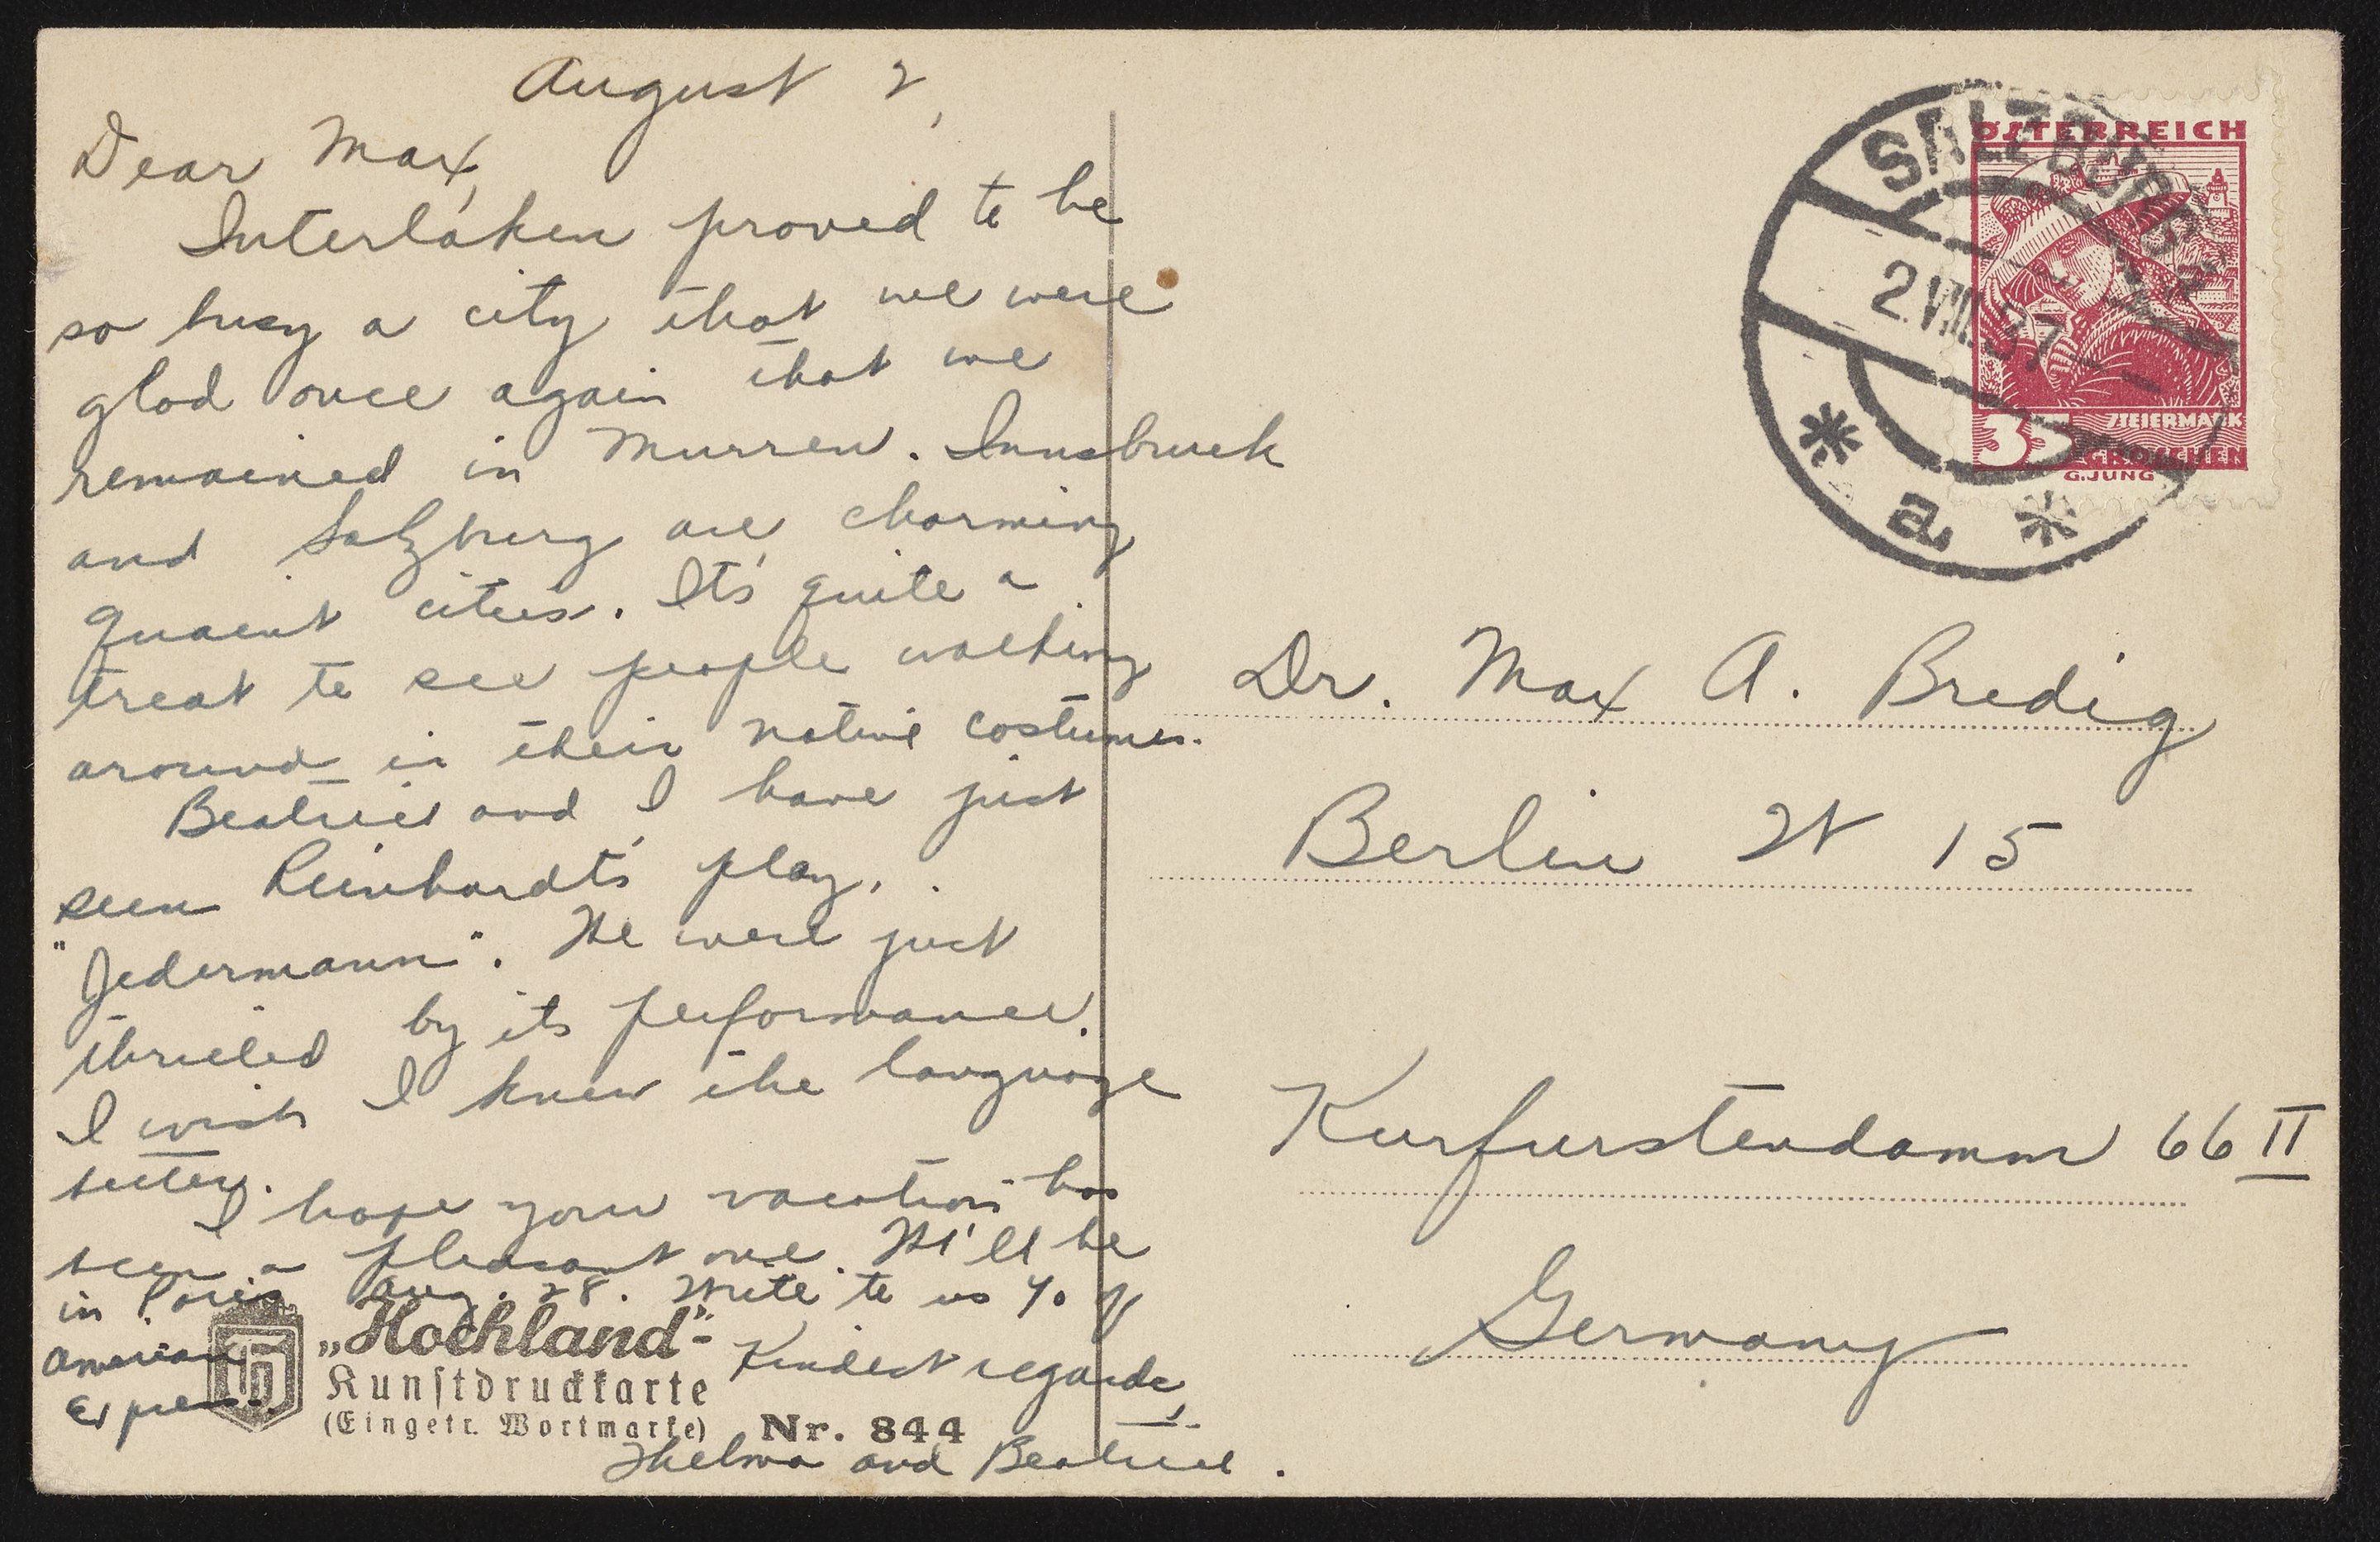 August 2,
Dear Max,
Interlaken proved to be
so busy a city that we were
glad once again that we
remained in Murren. Innsbruck
and Salzburg are charming
quaint cities. It's quite a
treat to see people walking
around in their native costumes.
Beatrice and I have just
seen Reinhardt's play,
"Jedermann". We were just
thrilled by its performance.
I wish I knew the language
better.
I hope your vacation has
been a pleasant one. We'll be
in Paris Aug. 28. Write to us %
American
Express.
Kindest regards,
Thelma and Beatrice.
„Hochland"-
Kunstdruckkarte
(Eingetr. Wortmarke) Nr. 844
SALZBURG 2
2.VIII.37
* a *
ÖSTERREICH
STEIERMARK
35 GROSCHEN
G.JUNG
Dr. Max A. Bredig
Berlin W 15
Kurfurstendamm 66 II
Germany